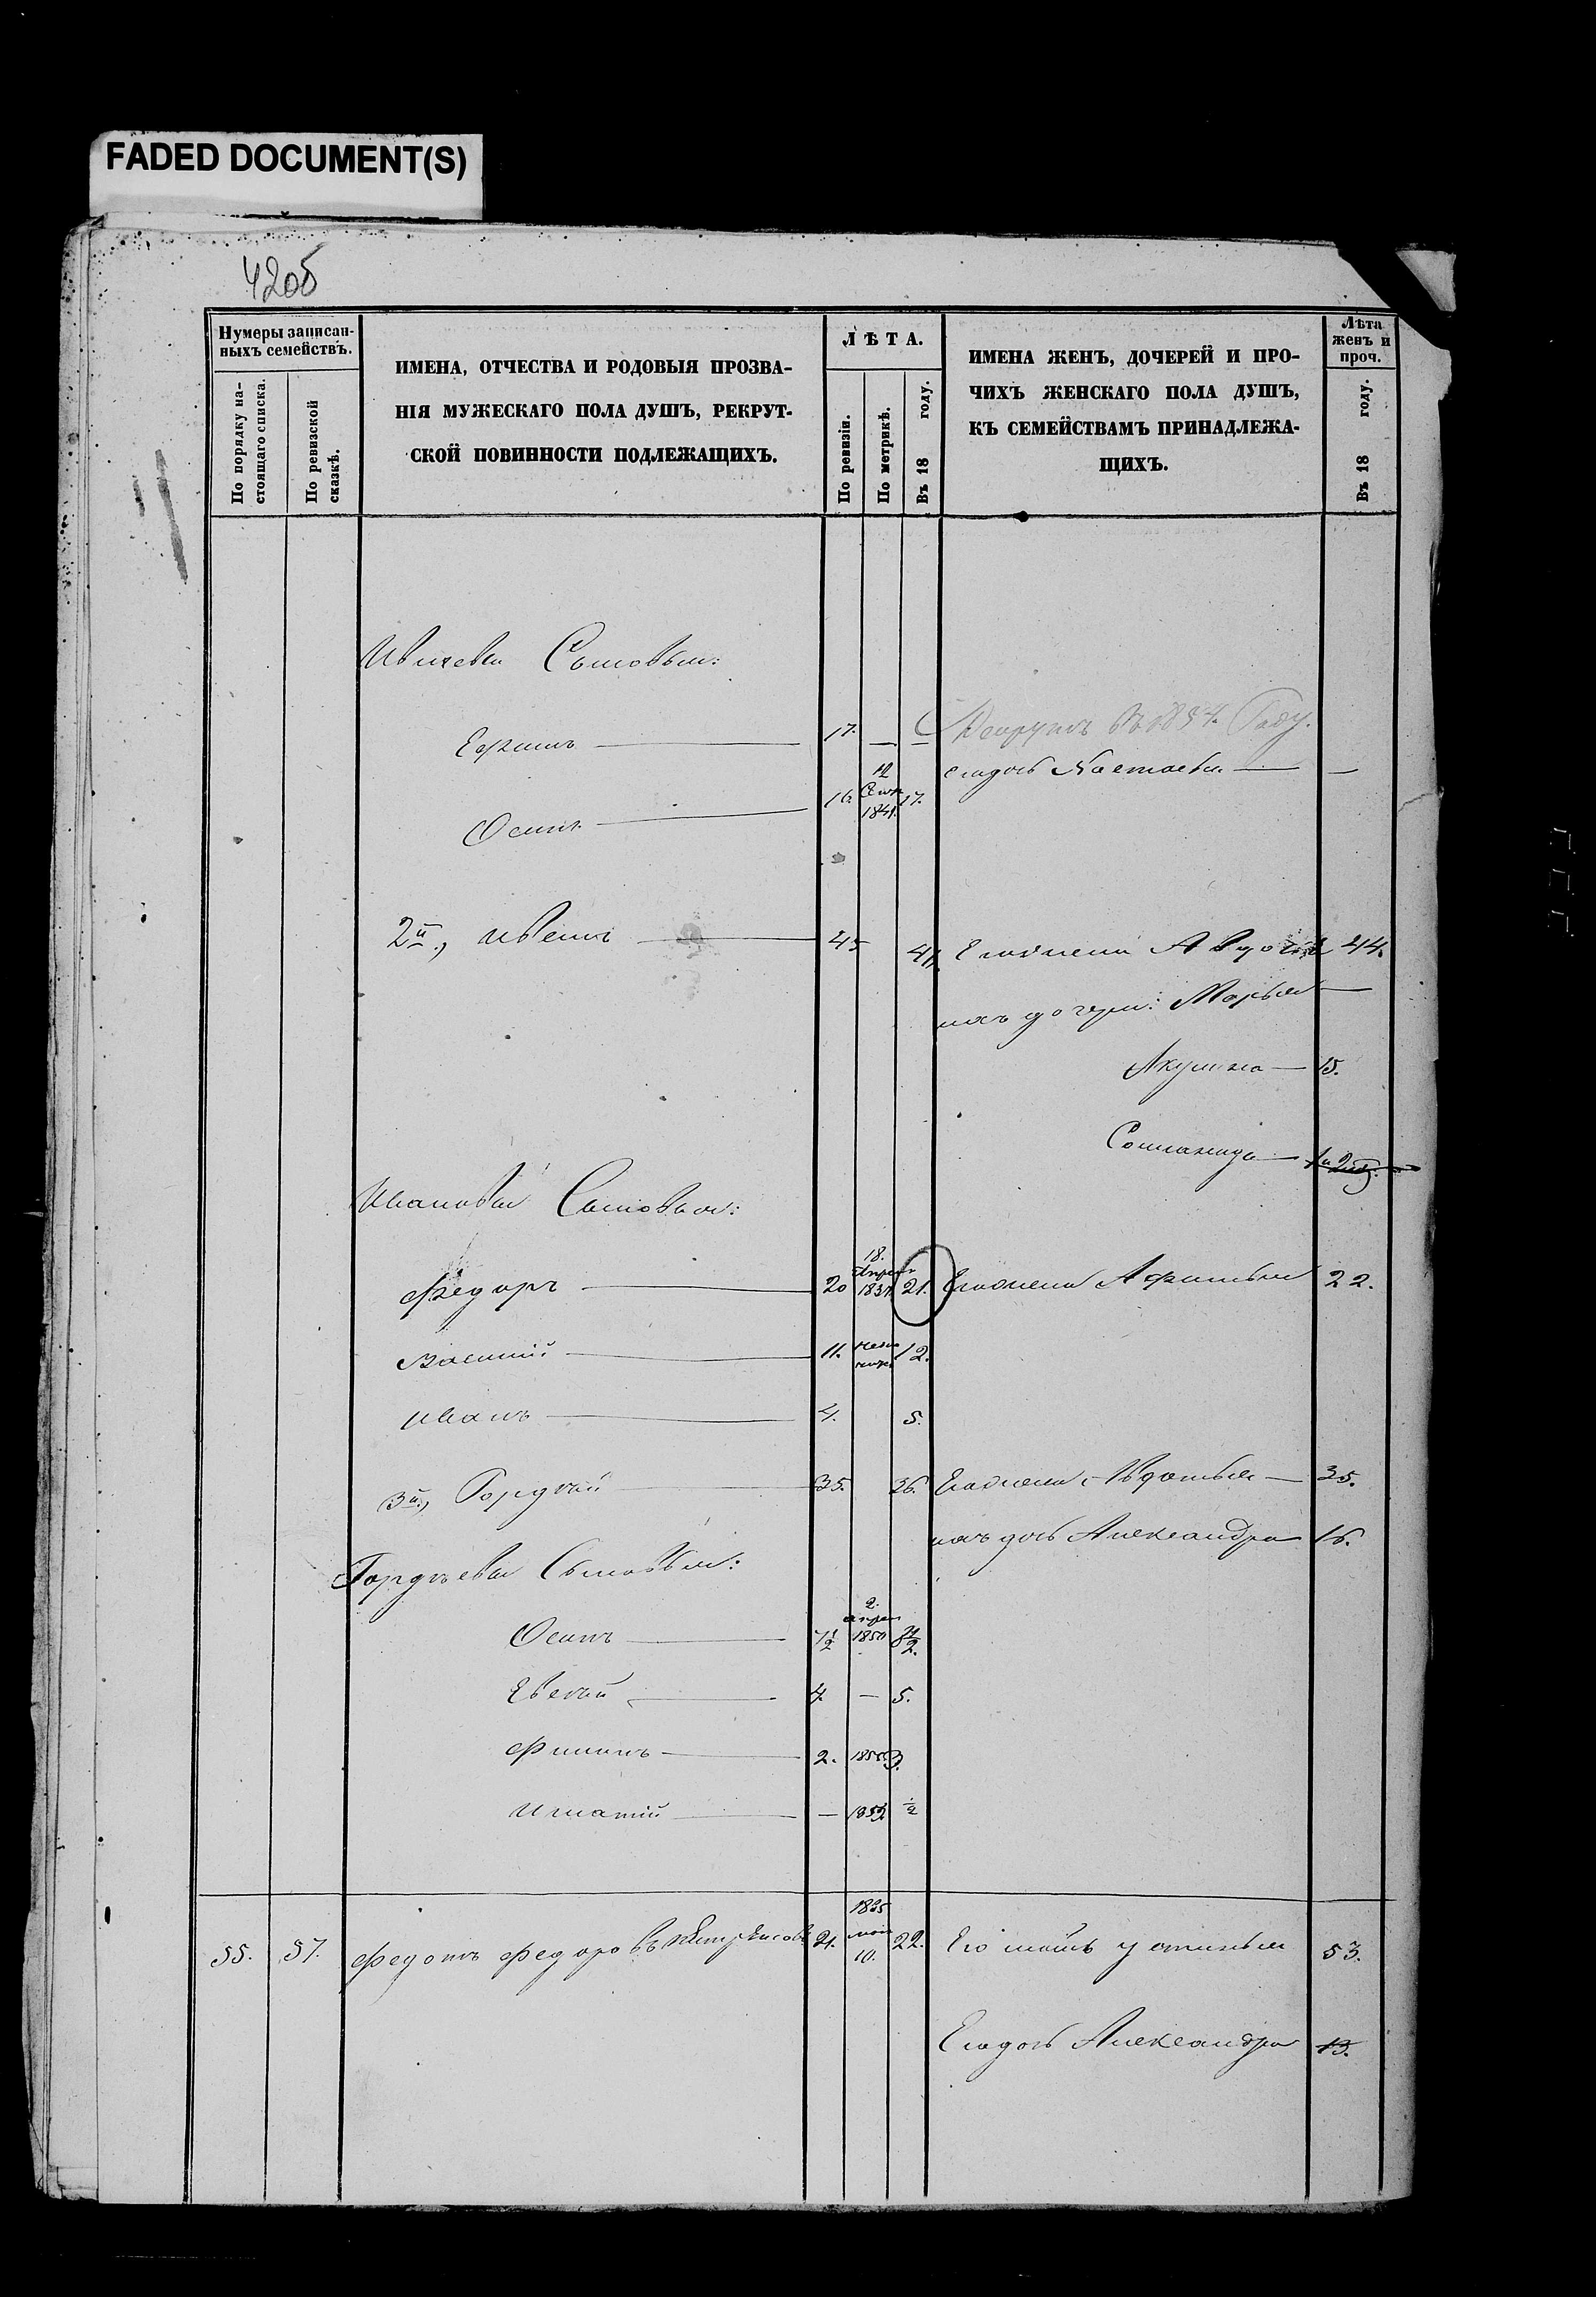 FADED DOCUMENT(S)
42об
Нумеры записан-
ныхъ семействъ.
По порядку на-
стоящаго списка.
По ревизской
сказкѣ.
ИМЕНА, ОТЧЕСТВА И РОДОВЫЯ ПРОЗВА-
НІЯ МУЖЕСКАГО ПОЛА ДУШЪ, РЕКРУТ-
СКОЙ ПОВИННОСТИ ПОДЛЕЖАЩИХЪ.
ЛѢТА.
По ревизіи.
По метрикѣ.
Въ 18 году.
ИМЕНА ЖЕНЪ, ДОЧЕРЕЙ И ПРО-
ЧИХЪ ЖЕНСКАГО ПОЛА ДУШЪ,
КЪ СЕМЕЙСТВАМЪ ПРИНАДЛЕЖА-
ЩИХЪ.
Лѣта
женъ и
проч.
Въ 18 году.
Сыновья:
Ефимъ — 17. — — Рекрутъ въ 1854. Году.
Осипъ — 16. 1841. 17.
2й, — 45 Его жена Авдотья 44.
ихъ дочери: Марья —
Акулина — 15.
Ивановы Сыновья:
Федоръ — 20 18. Апреля 21. Его жена Афимья 22.
Василий — 11. 12.
Иванъ — 4. 5.
3й, Гордѣй 35. 36. Его жена Авдотья — 35.
ихъ дочь Александра 16.
Гордѣевы Сыновья:
Осипъ — 7½ 2. апреля 1850 8½.
4. — 5.
Филипъ — 2. 1855. 3.
Игнатій — — ½
55. 57. Федотъ Федоровъ 21. 1835 мая 10. 22. Его мать Устинья 53.
Его дочь Александра 13.